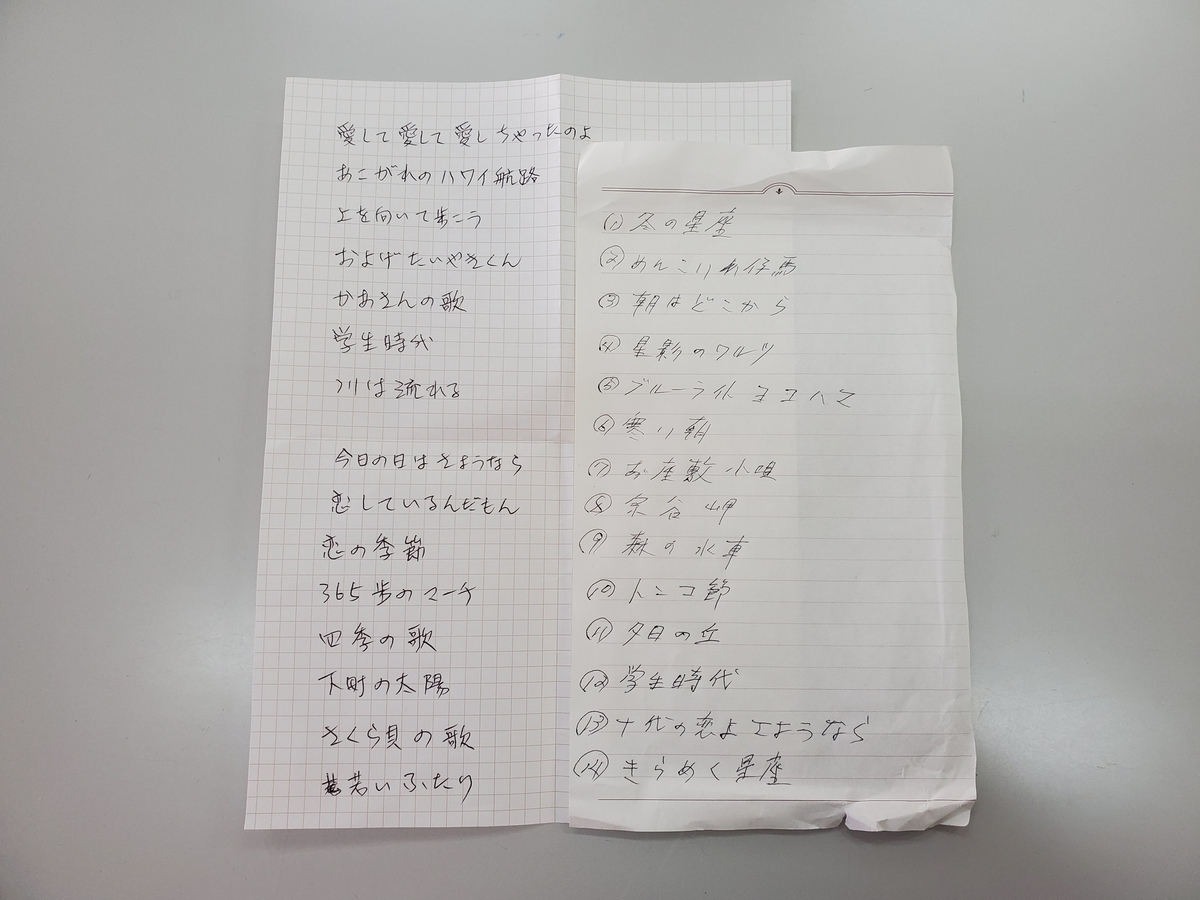 愛して愛して愛しちゃったのよ
あこがれのハワイ航路
上を向いて歩こう
およげたいやきくん
かあさんの歌
学生時代
川は流れる
今日の日はさようなら
恋しているんだもん
恋の季節
365歩のマーチ
四季の歌
下町の太陽
さくら貝の歌
若いふたり
① 冬の星座
② めんこい仔馬
③ 朝はどこから
④ 星影のワルツ
⑤ ブルーライトヨコハマ
⑥ 寒い朝
⑦ お座敷小唄
⑧ 宗谷岬
⑨ 森の水車
⑩ トンコ節
⑪ 夕日の丘
⑫ 学生時代
⑬ 十代の恋よさようなら
⑭ きらめく星座